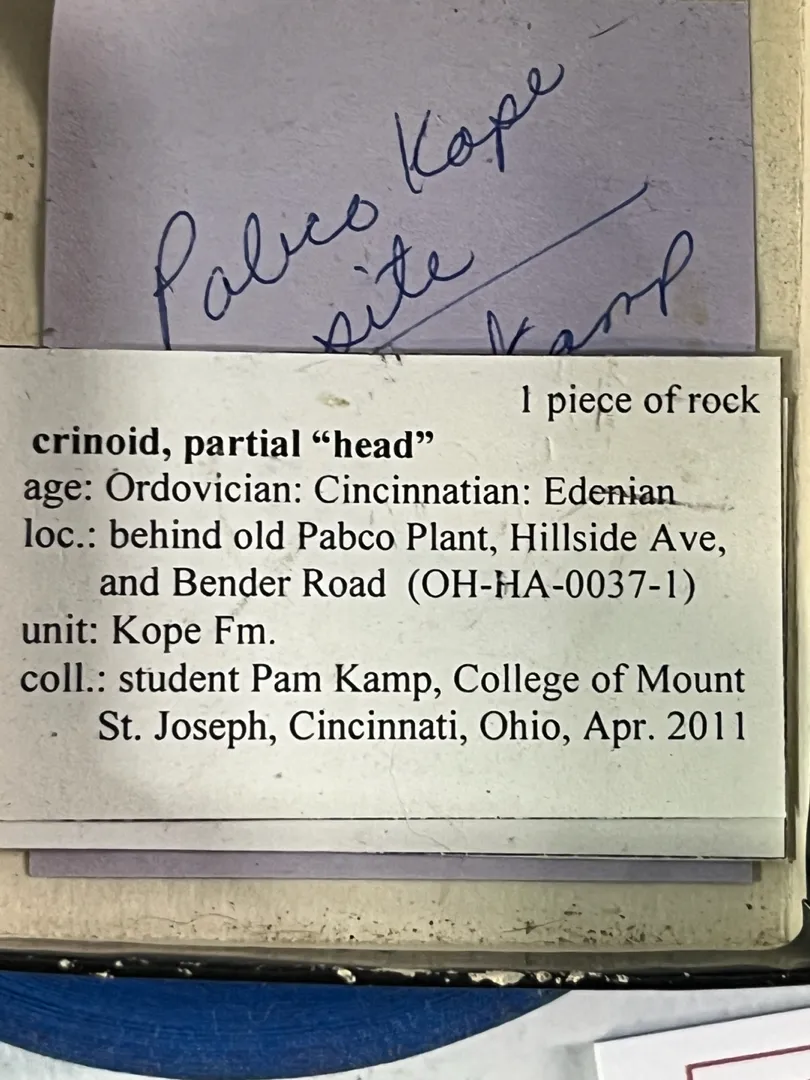 Pabco Kope
site
Kamp
1 piece of rock
crinoid, partial “head”
age: Ordovician: Cincinnatian: Edenian
loc.: behind old Pabco Plant, Hillside Ave,
and Bender Road (OH-HA-0037-1)
unit: Kope Fm.
coll.: student Pam Kamp, College of Mount
St. Joseph, Cincinnati, Ohio, Apr. 2011